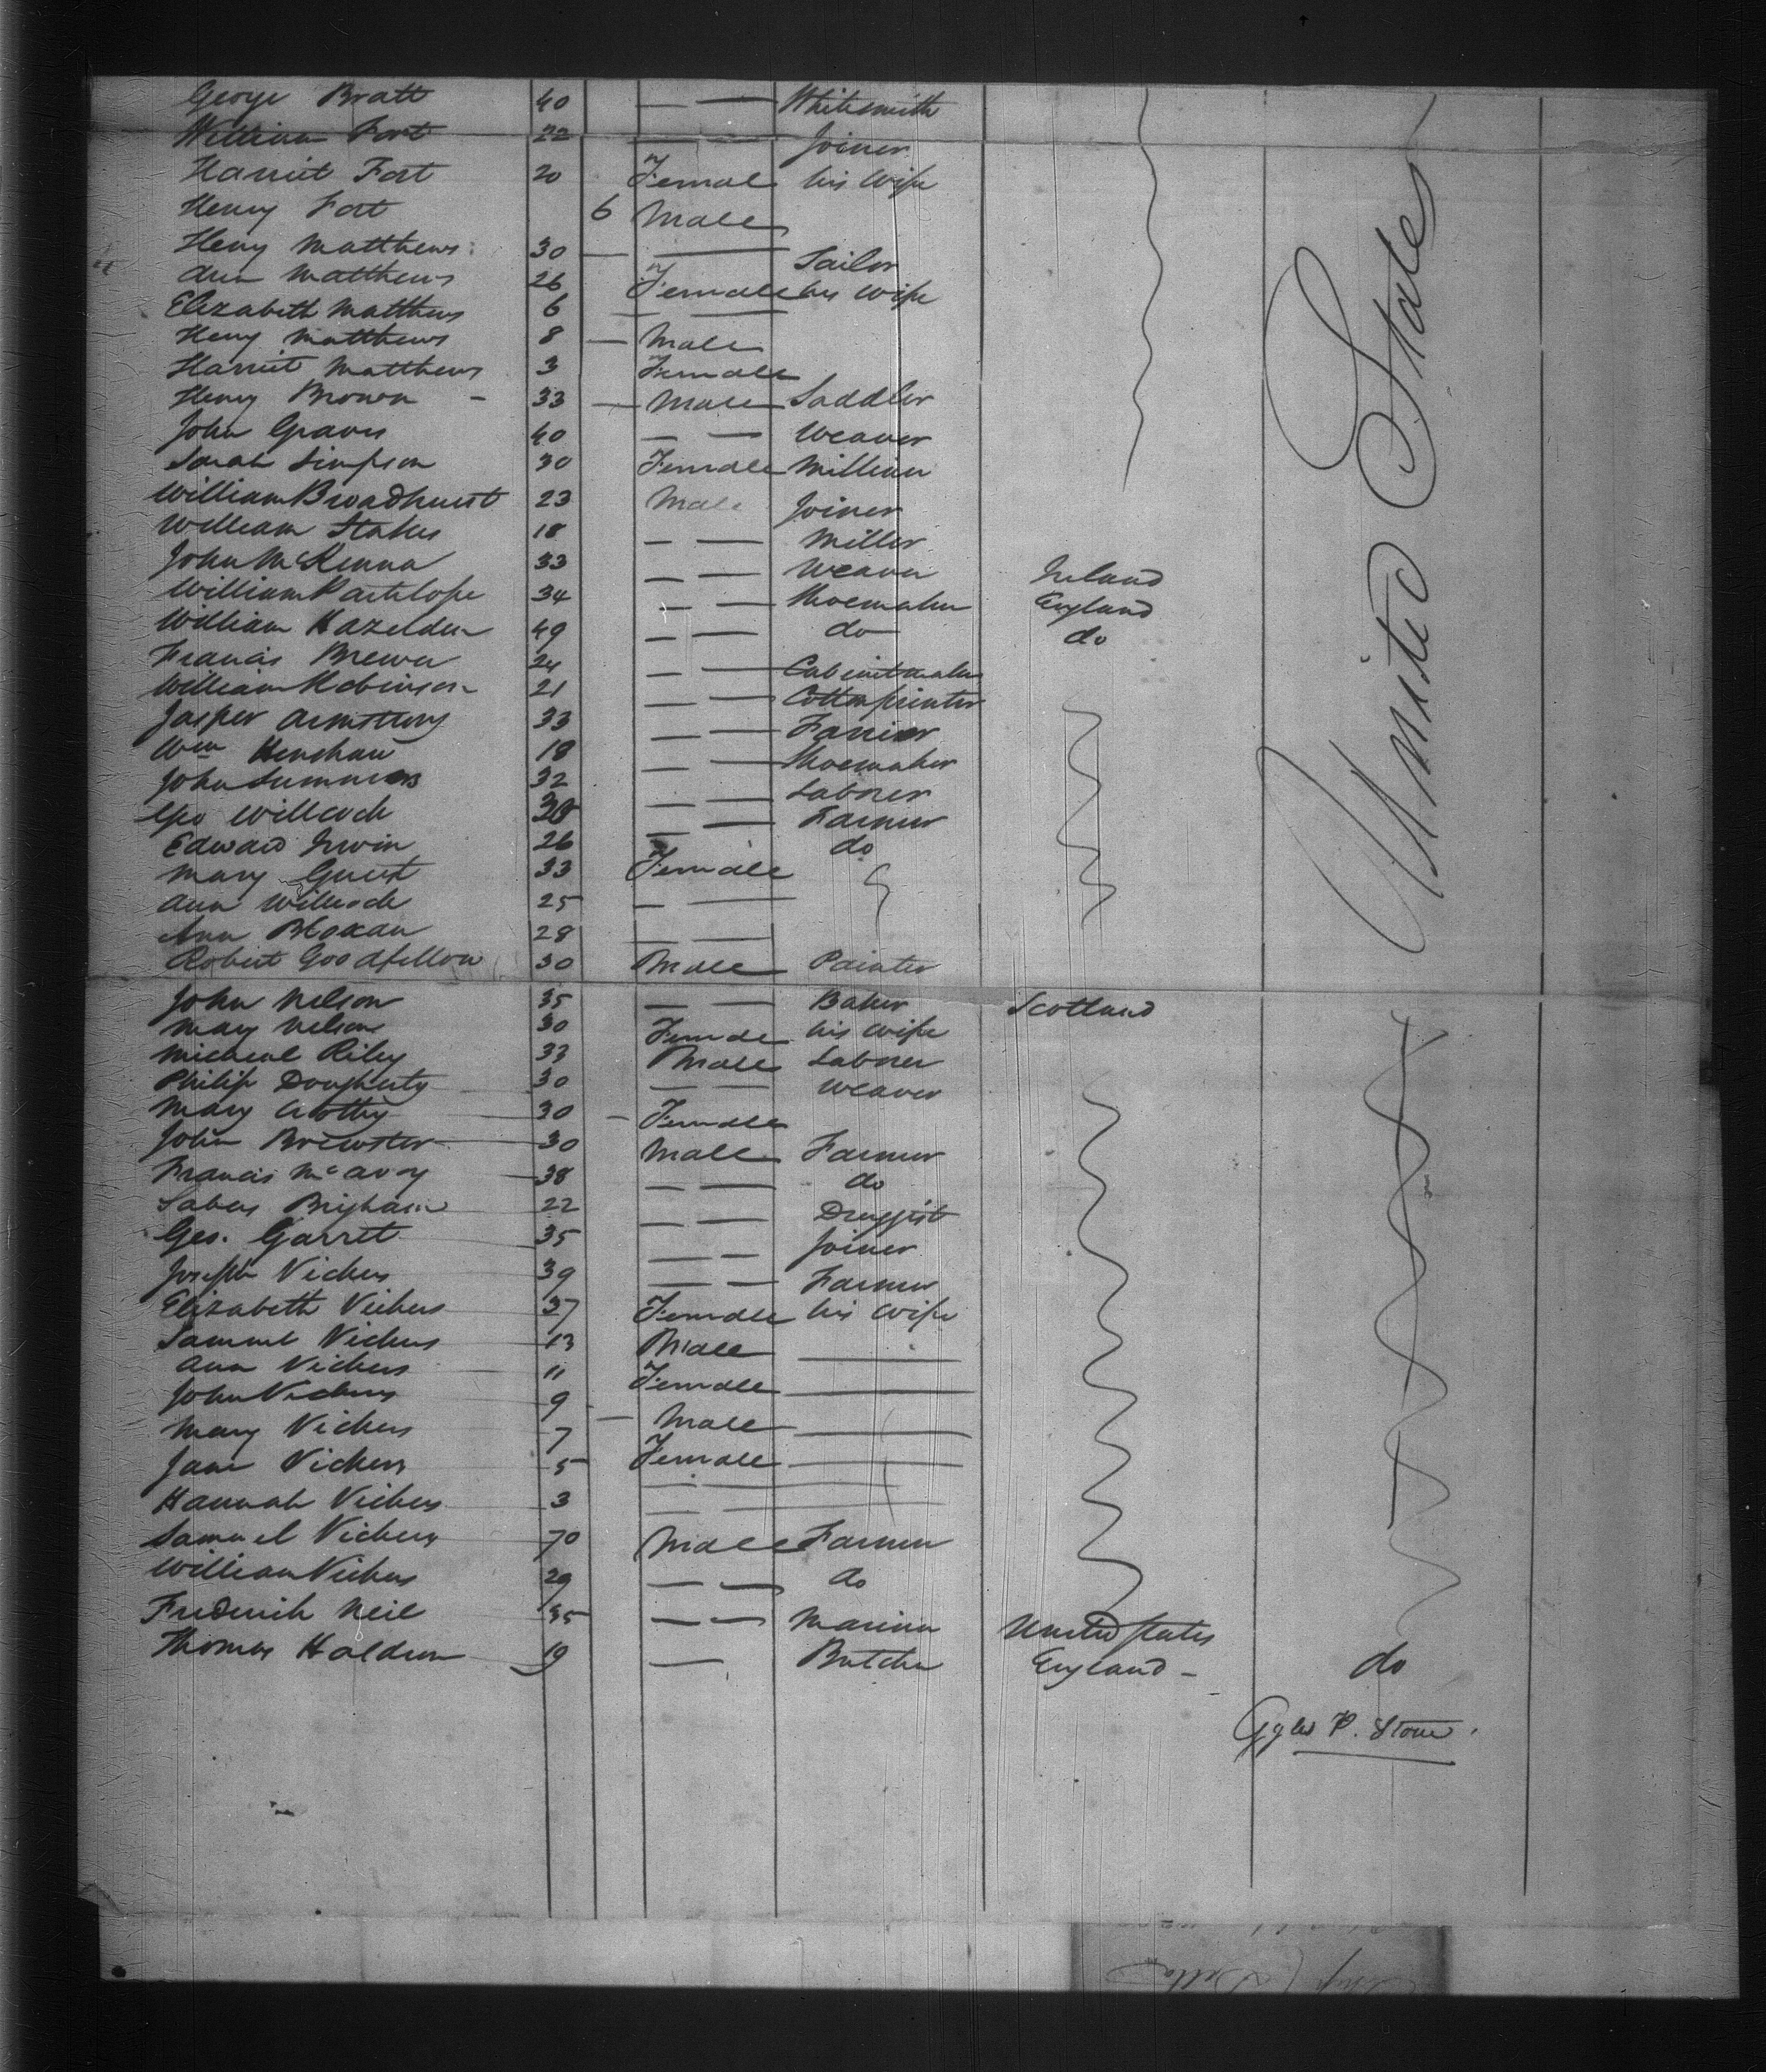 George Bratt 40 — — Whitesmith
William Fort 22 — — Joiner
Harriet Fort 20 Female his wife
Henry Fort 6 Male
Henry Matthews 30 — — Sailor
Ann Matthews 26 Female his wife
Elizabeth Matthews 6 — —
Henry Matthews 8 — Male
Harriet Matthews 3 Female
Henry Brown - 33 — Male Saddler
John Graves 40 — — Weaver
Sarah Simpson 30 Female Milliner
William Broadhurst 23 Male Joiner
William Stakes 18 — — Miller
John McKenna 33 — — Weaver Ireland
William Partelope 34 — — Shoemaker England
William Hazelden 49 — — do do
Francis Brewer 24 — — Cabinetmaker
William Robinson 21 — — Cottonprinter
Jasper Armstrong 33 — — Farrier
Wm Henshaw 18 — — Shoemaker
John Summers 32 — — Laborer
Geo Willcock — — Farmer
Edward Irwin 26 do
Mary Guest 33 Female
Ann Willcock 25 — —
Ann Bloxan 28 — —
Robert Goodfellow 30 Male Painter
United States
John Nelson 35 — — Baker Scotland
Mary Nelson 30 Female his wife
Micheal Riley 33 Male Laborer
Philip Dougherty 30 — — Weaver
Mary 30 — Female
John Brewster 30 Male Farmer
Francis McAvoy 38 — — do
Brigham 22 — — Druggist
Geo. Garret 35 — — Joiner
Joseph Vickers 39 — — Farmer
Elizabeth Vickers 37 Female his wife
Samuel Vickers 13 Male —
Ann Vickers 11 Female —
John Vickers 9 — Male —
Mary Vickers 7 Female —
Jane Vickers 5 — —
Hannah Vickers 3 — —
Samuel Vickers 70 Male Farmer
William Vickers 29 — — do
Frederick Neil 35 — — Marine United States
Thomas Haldern 19 — Butcher England - do
Gyles P. Stone.